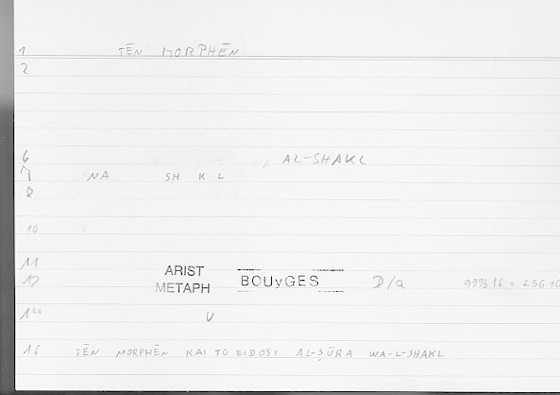 1 TĒN MORPHĒN
2
6 AL-SHAKL
7 NA SH K L
8
10
11
ARIST
12 METAPH BOUyGES D/a
14 V
16 TĒN MORPHĒN KAI TO EIDOS: AL-ṢŪRA WA-L-SHAKL